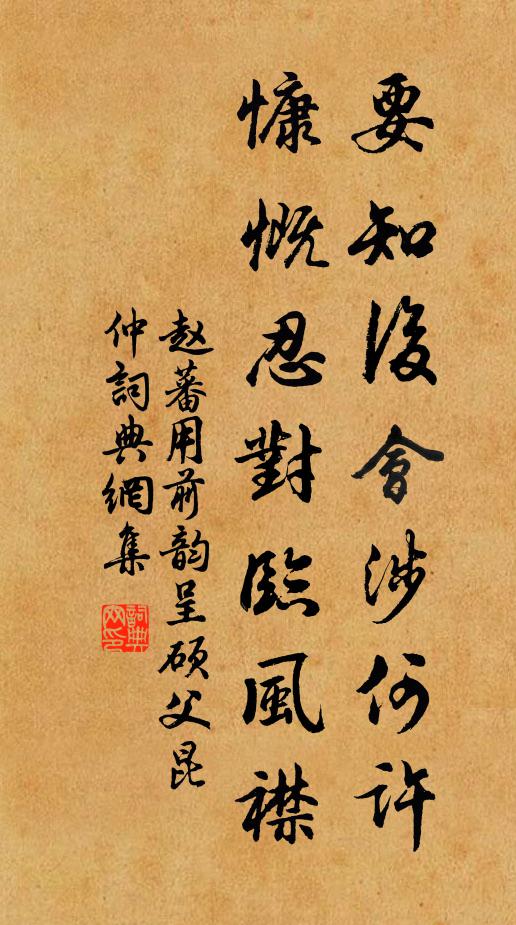 要知後會涉何許
慷慨忍對臨風襟
赵蕃用前韵呈硕父昆
仲詞典網集
詞典網印